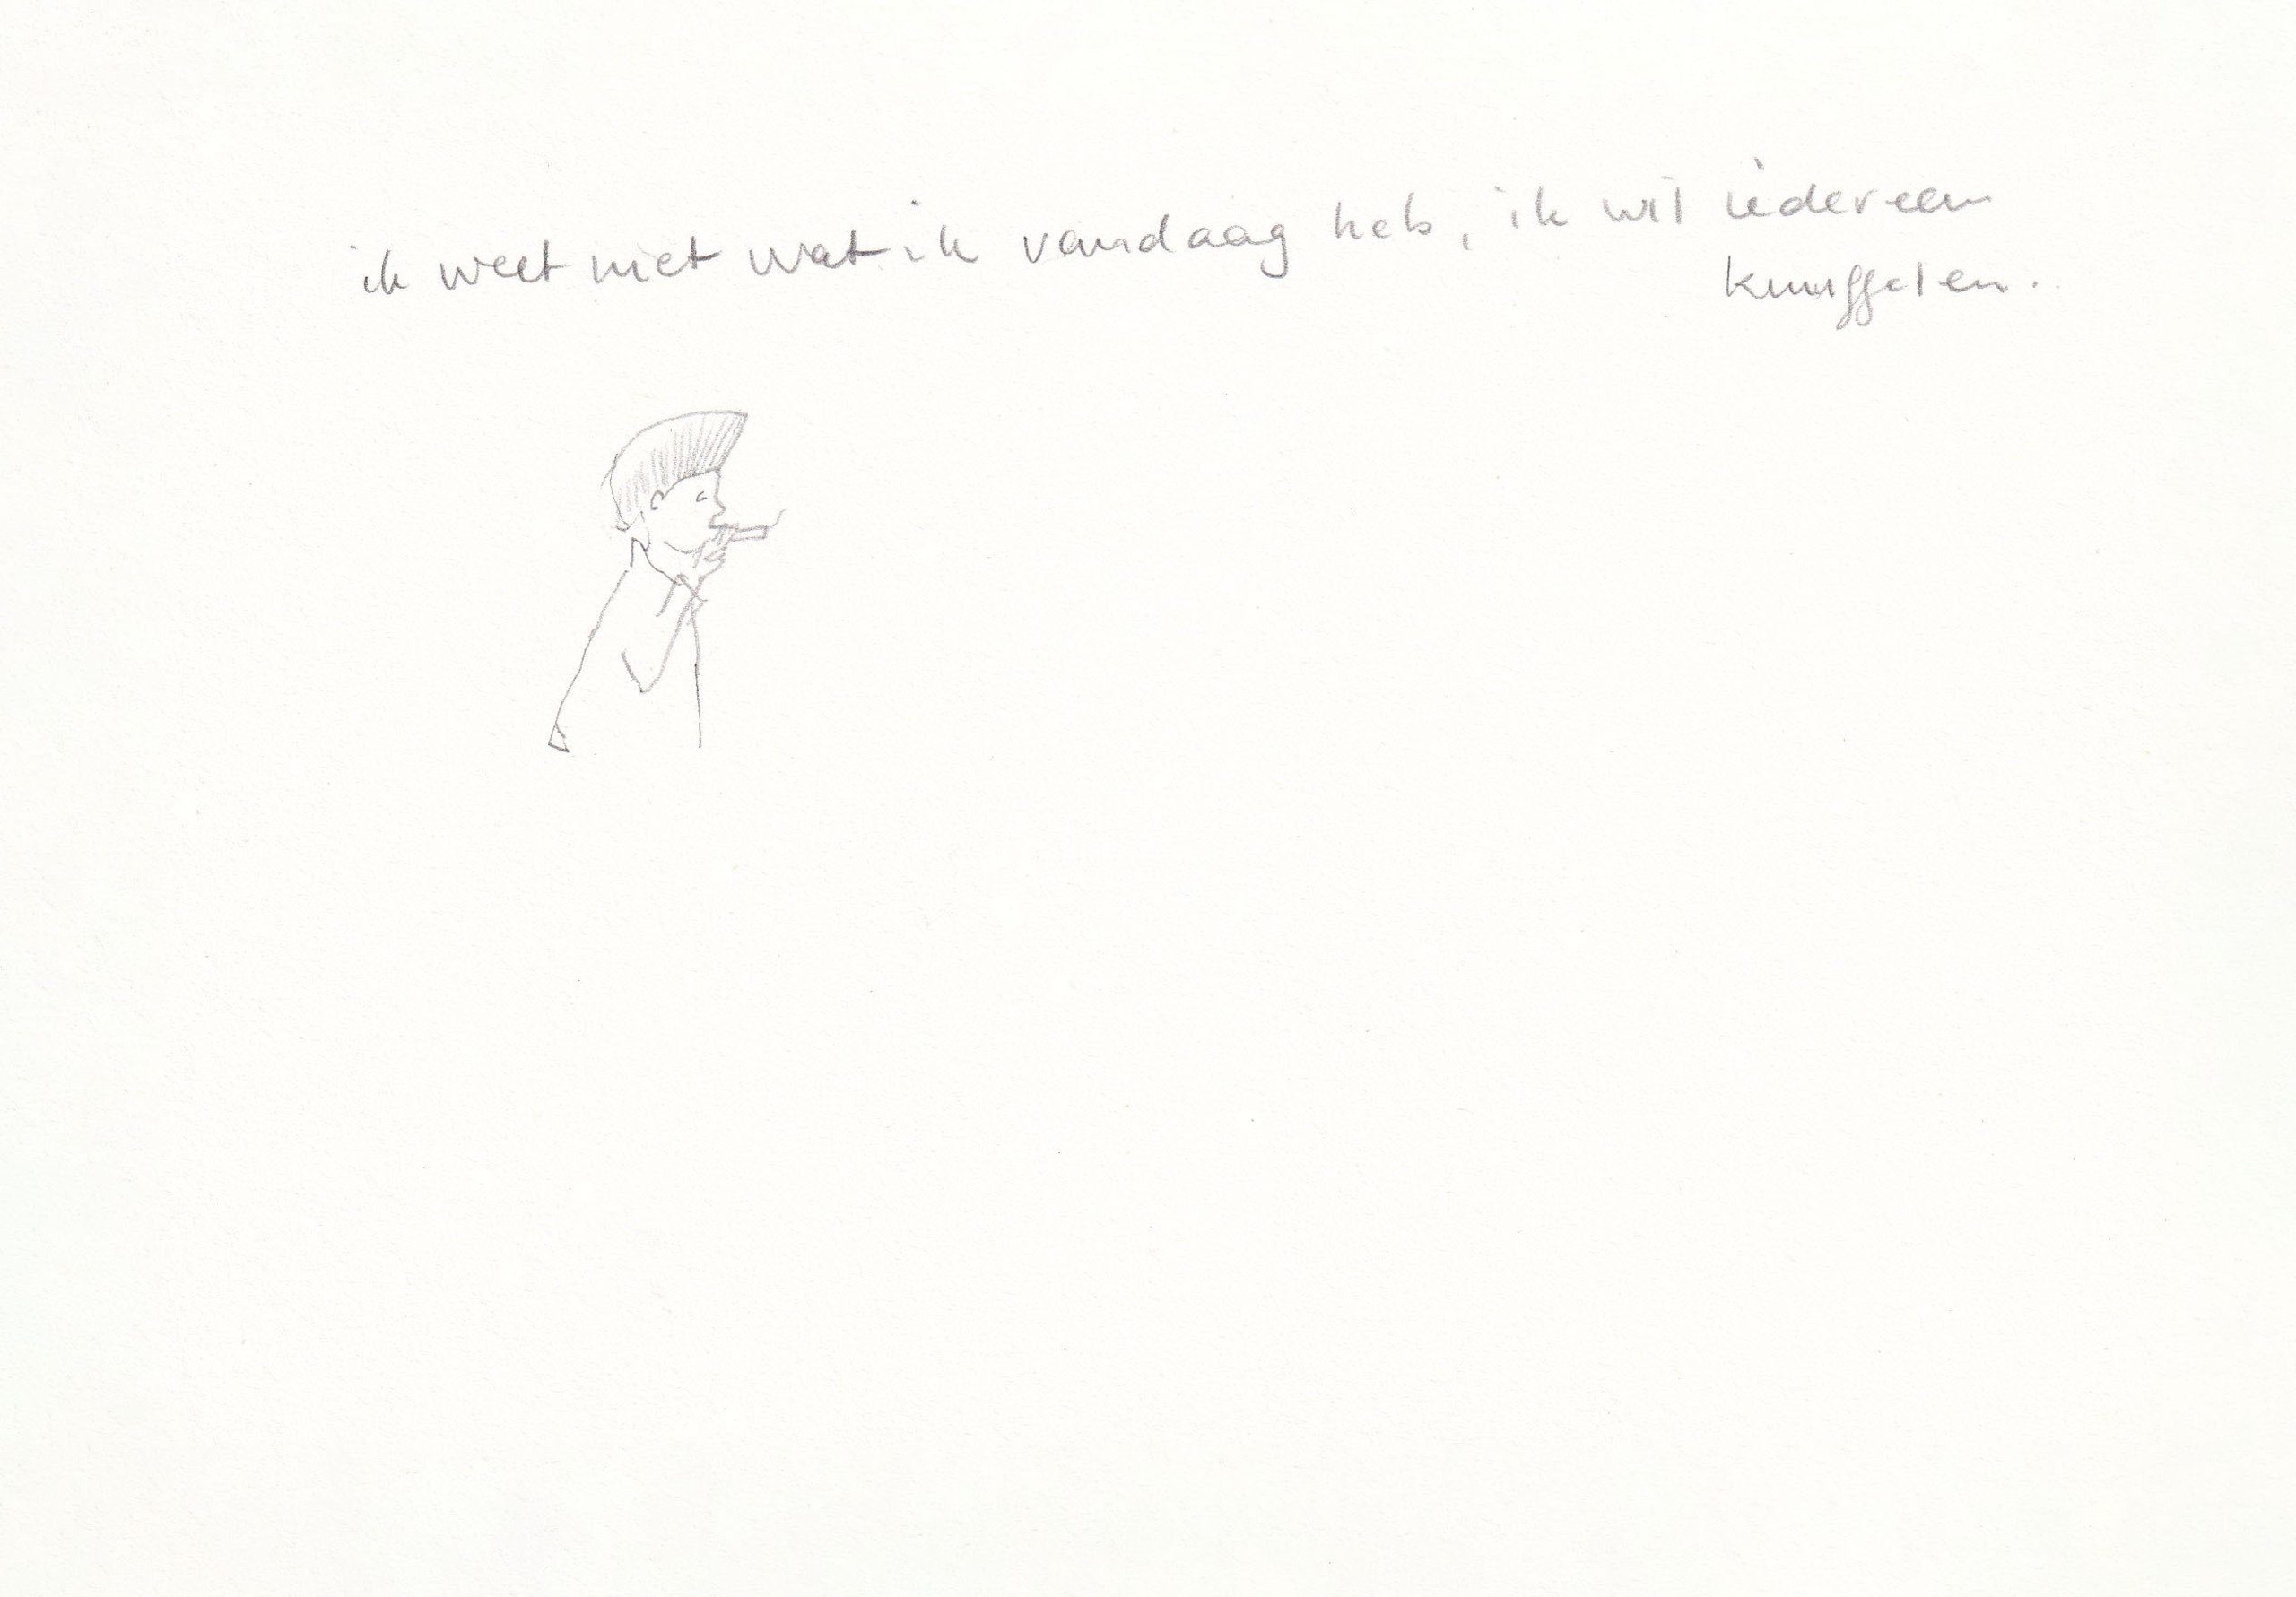 ik weet niet wat ik vandaag heb, ik wil iedereen
knuffelen.